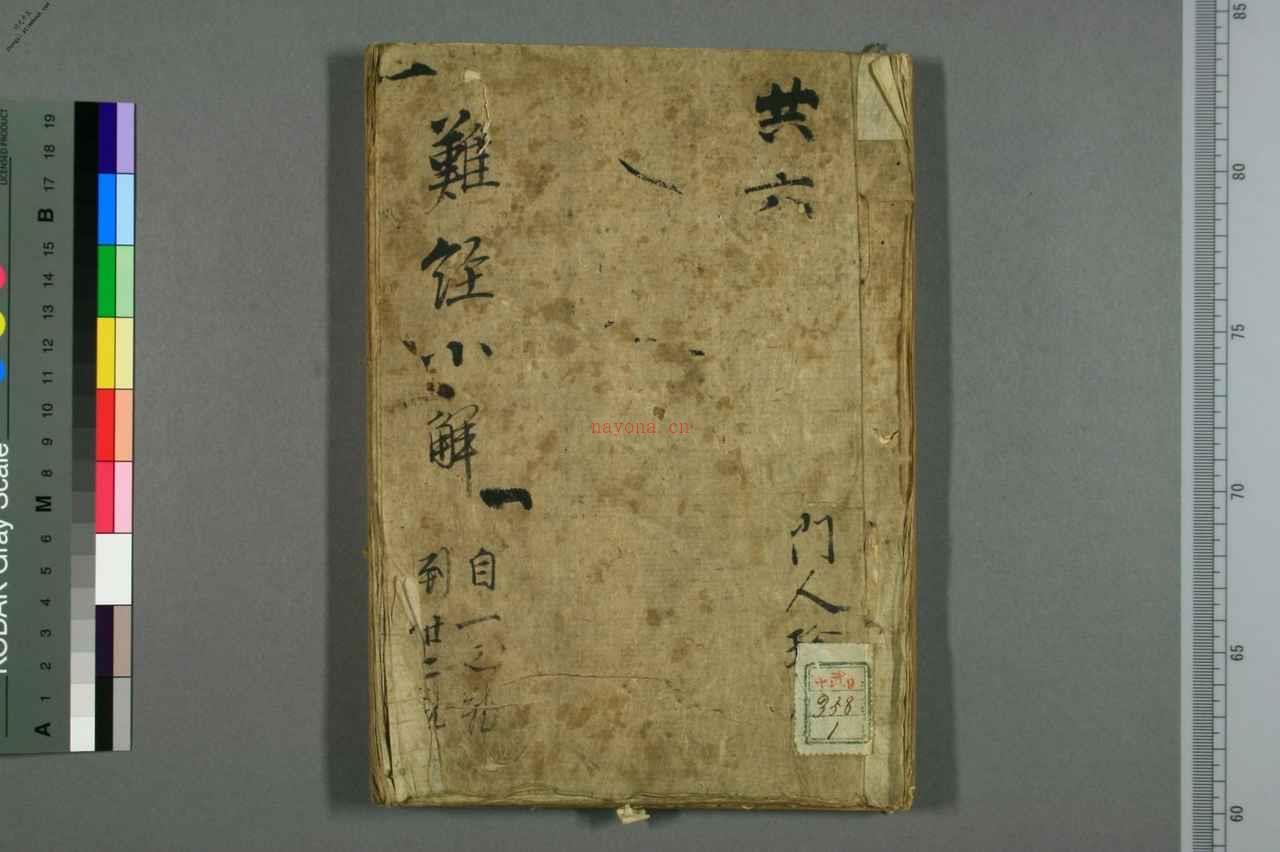 共六
門人
一
難經小解 一
自一
到廿二
938
1
nayona.cn
KODAK Gray Scale
LICENSED PRODUCT
A 1 2 3 4 5 6 M 8 9 10 11 12 13 14 15 B 17 18 19
85
80
75
70
65
60